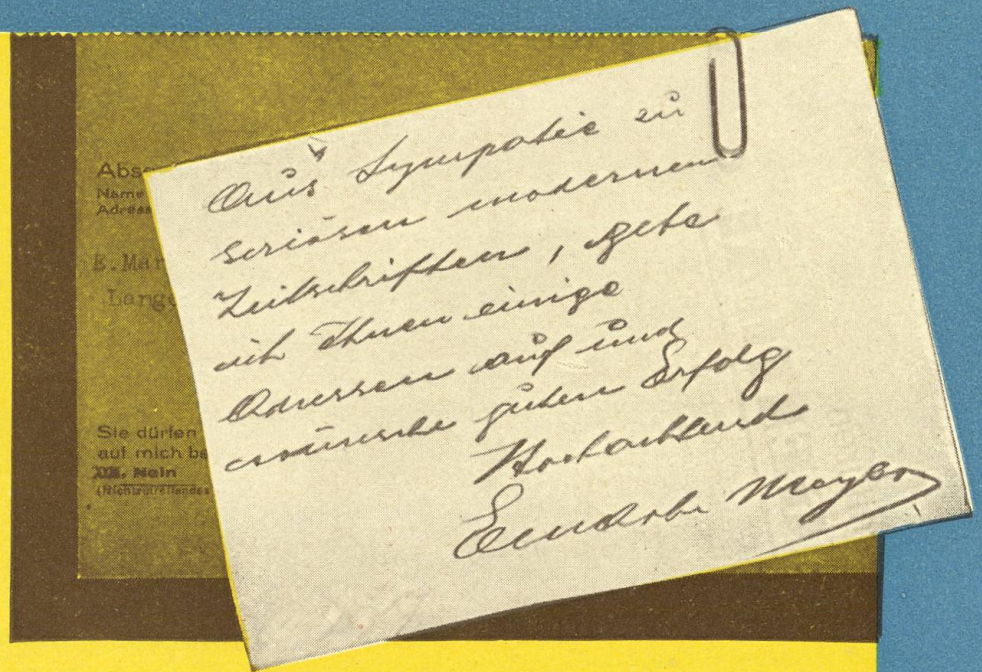 Abs
Name
Adress
E. Mar
Lang
Sie dürfen
auf mich be
Nein
(Nichtzutreffendes
Aus Sympatie zu
seriösen modernen
Zeitschriften, gebe
ich Ihnen einige
Adressen auf und
wünsche guten Erfolg
Hochachtend
Meyer